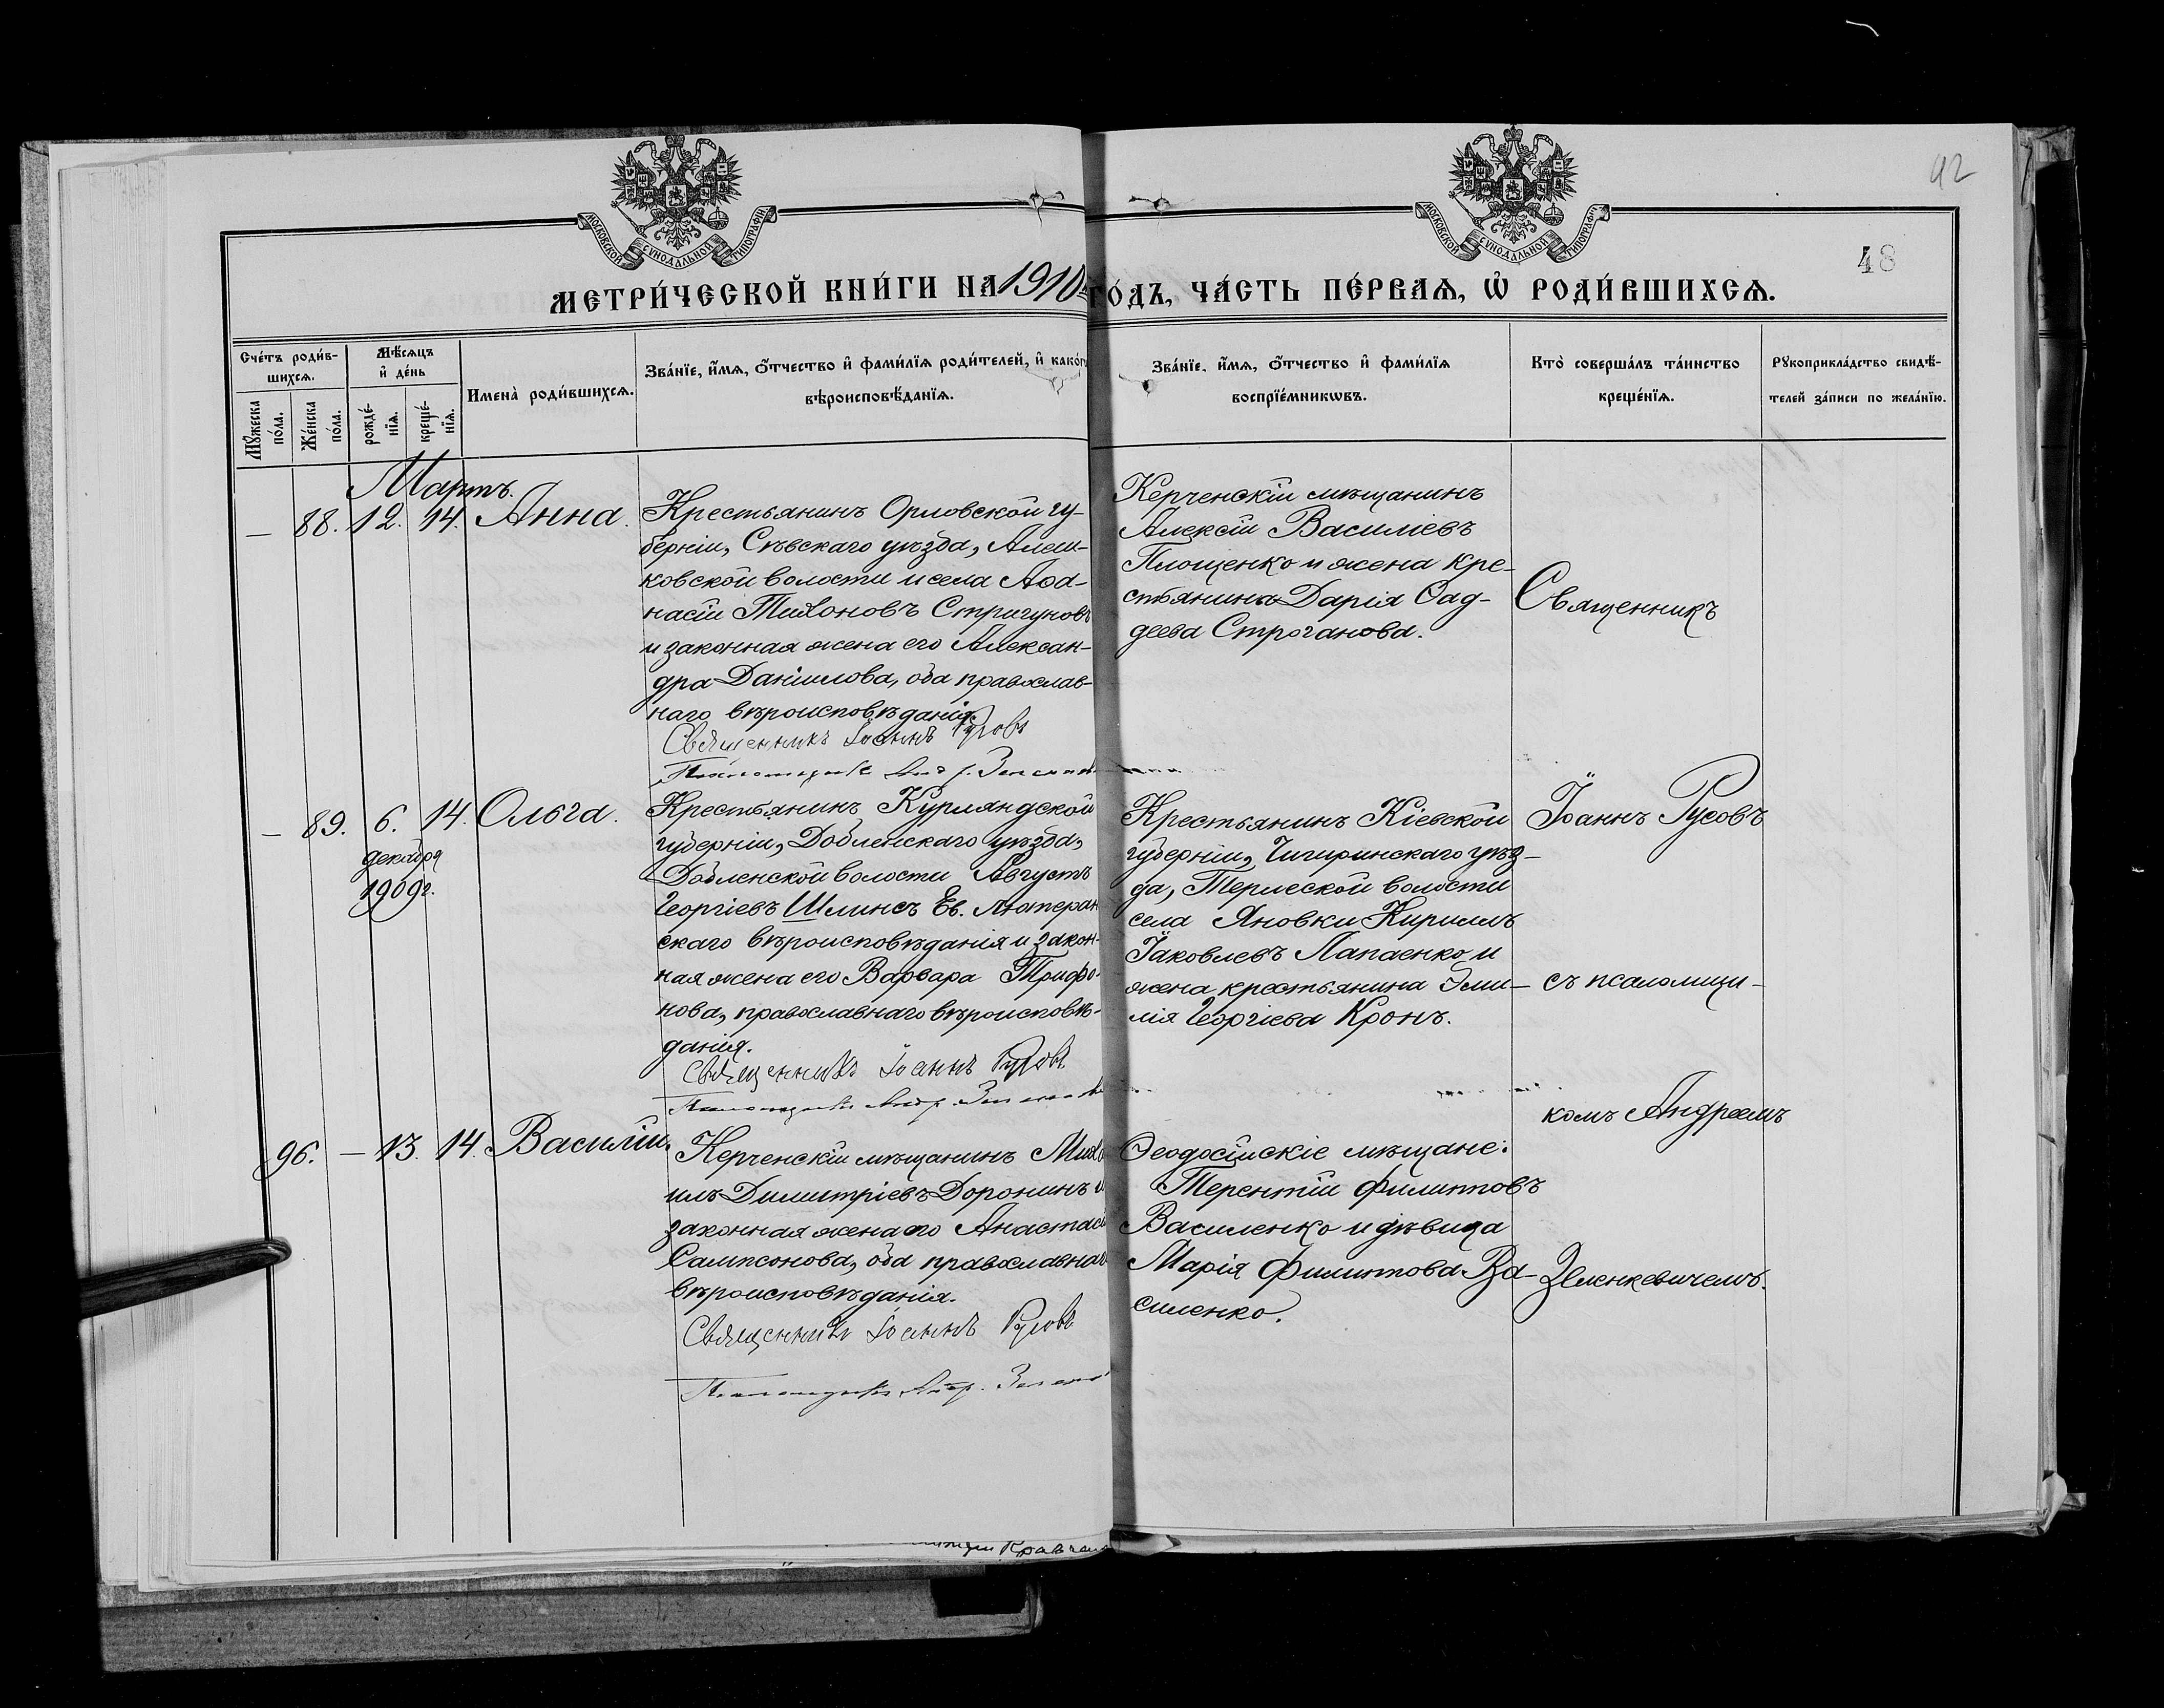 42
48
МОСКОВСКОЙ СѴНОДАЛЬНОЙ ТИПОГРАФІИ
МОСКОВСКОЙ СѴНОДАЛЬНОЙ ТИПОГРАФІИ
МЕТРИ́ЧЕСКОЙ КНИ́ГИ НА 1910 ГО́ДЪ, ЧА́СТЬ ПЕ́РВАѦ, Ѡ҆ РОДИ́ВШИХСѦ.
Сче́тъ роди́в-
шихсѧ.
Мѣ́сѧцъ
и҆ де́нь
Мꙋ́жеска
по́ла.
Же́нска
по́ла.
рожде́-
нїѧ.
креще́-
нїѧ.
Имена̀ роди́вшихсѧ.
Зва́нїе, и҆́мѧ, ѻ҆́тчество и҆ фами́лїѧ роди́телей, и҆ како́гѡ
вѣроисповѣ́данїѧ.
Зва́нїе, и҆́мѧ, ѻ҆́тчество и҆ фами́лїѧ
воспрїе́мникѡвъ.
Кто̀ соверша́лъ та́инство
креще́нїѧ.
Рꙋкоприкла́дство свидѣ́-
телей за́писи по жела́нїю.
Мартъ.
— 88. 12. 14. Анна.
Крестьянинъ Орловской гу-
берніи, Сѣвскаго уѣзда, Алеш-
ковской волости и села Аѳа-
насій Тихоновъ Стригуновъ
и законная жена его Алексан-
дра Даніилова, оба православ-
наго вѣроисповѣданія.
Священникъ Іоаннъ Русовъ
Псаломщикъ Андр.
Керченскій мѣщанинъ
Алексій Василіевъ
Площенко и жена кре-
стьянина Дарія Ѳад-
деева Строганова.
Священникъ
— 89. 6. 14. Ольга.
декабря
1909г.
Крестьянинъ Курляндской
губерніи, Добленскаго уѣзда,
Добленской волости Августъ
Георгіевъ Шлинсъ Ев. Лютеран
скаго вѣроисповѣданія и закон-
ная жена его Варвара Трифо-
нова, православнаго вѣроисповѣ-
данія.
Священникъ Іоаннъ Русовъ
Псаломщикъ Андр.
Крестьянинъ Кіевской
губерніи, Чигиринскаго уѣз-
да, Телеской волости
села Яновки Кириллъ
Іаковлевъ Лапаенко и
жена крестьянина Эми-
лія Георгіева Кронъ.
Іоаннъ Русовъ
съ псаломщи-
комъ Андреемъ
Зеленкевичемъ.
96. — 13. 14. Василій.
Керченскій мѣщанинъ Миха
илъ Димитріевъ Доронинъ и
законная жена его Анастасі
Сампсонова, оба православнаго
вѣроисповѣданія.
Священникъ Іоаннъ Русовъ
Псаломщикъ Андр.
Ѳеодосійскіе мѣщане:
Терентій Филипповъ
Василенко и дѣвица
Марія Филиппова Ва-
силенко.